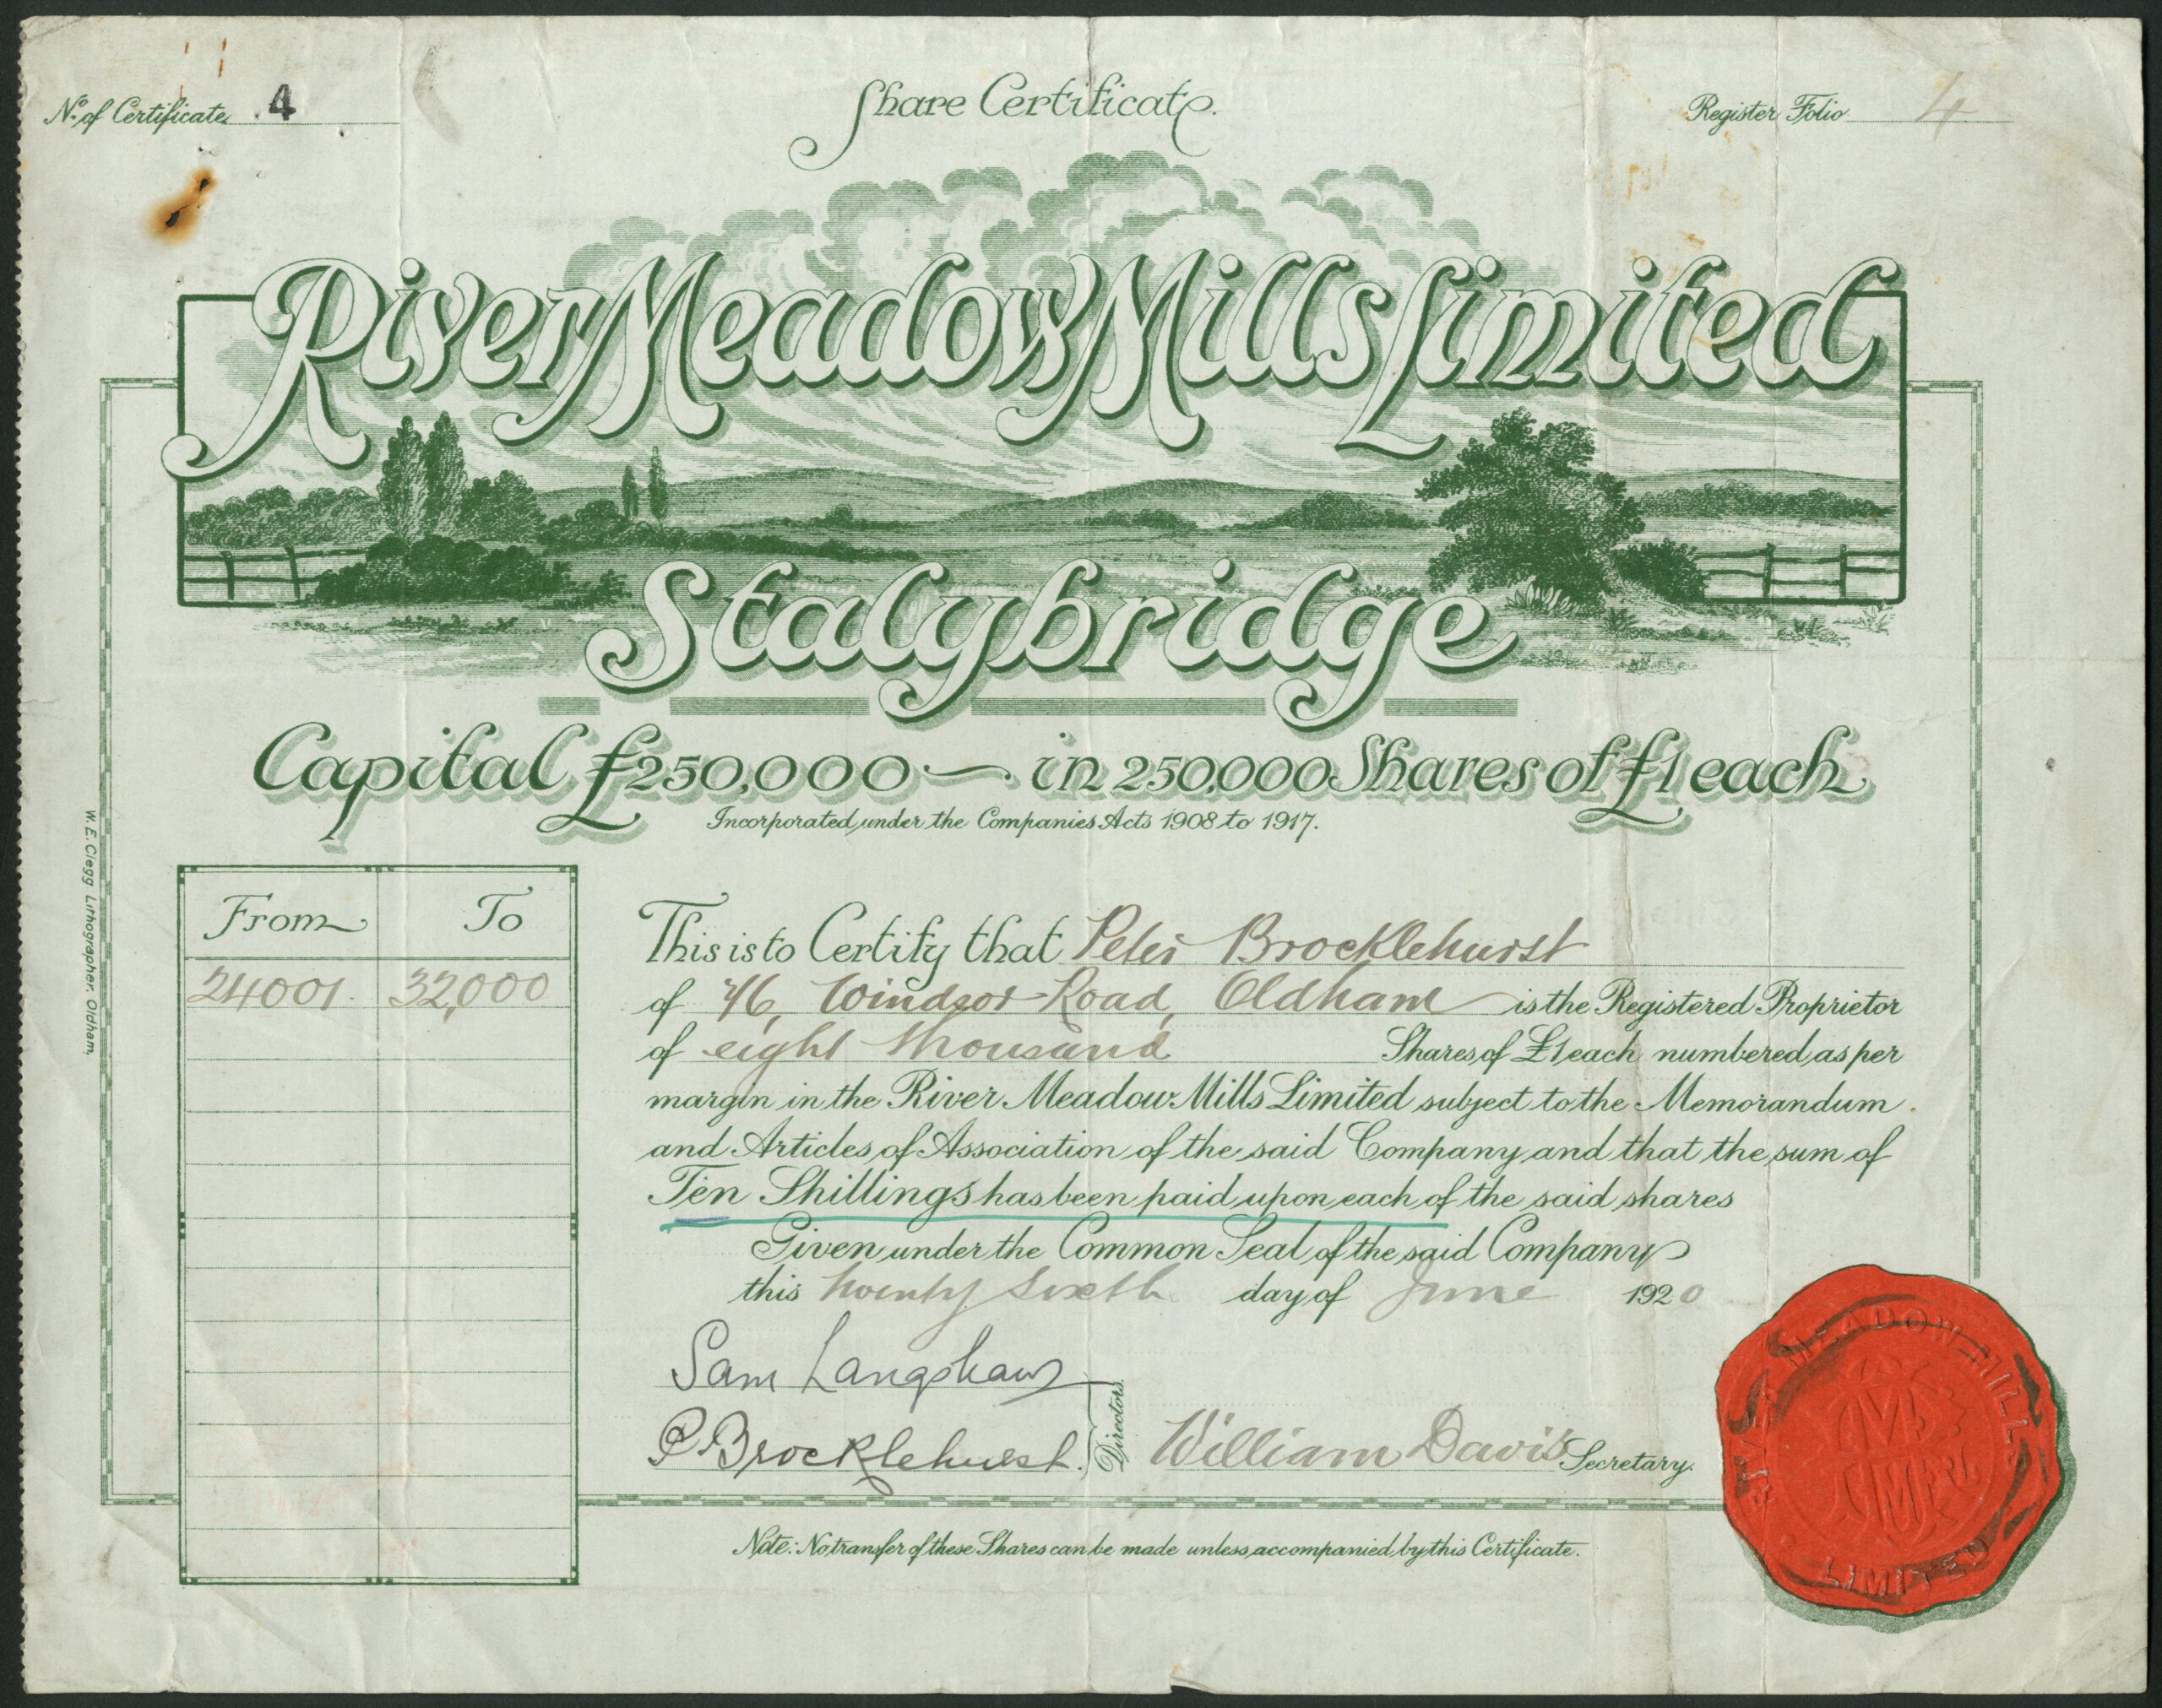 Share Certificate.
No. of Certificate 4
Register Folio 4
River Meadow Mills Limited
Stalybridge
Capital £250,000 — in 250,000 Shares of £1 each
Incorporated under the Companies Acts 1908 to 1917.
From To
24001. 32,000
This is to Certify that Peter Brocklehurst
of 46, Windsor Road, Oldham is the Registered Proprietor
of eight thousand Shares of £1 each numbered as per
margin in the River Meadow Mills Limited subject to the Memorandum
and Articles of Association of the said Company and that the sum of
Ten Shillings has been paid upon each of the said shares
Given under the Common Seal of the said Company
this twenty sixth day of June 1920
Sam Langshaw
P. Brocklehurst.
Directors.
William Davis Secretary.
Note: No transfer of these Shares can be made unless accompanied by this Certificate.
W. E. Clegg Lithographer. Oldham.
RIVER MEADOW MILLS
LIMITED